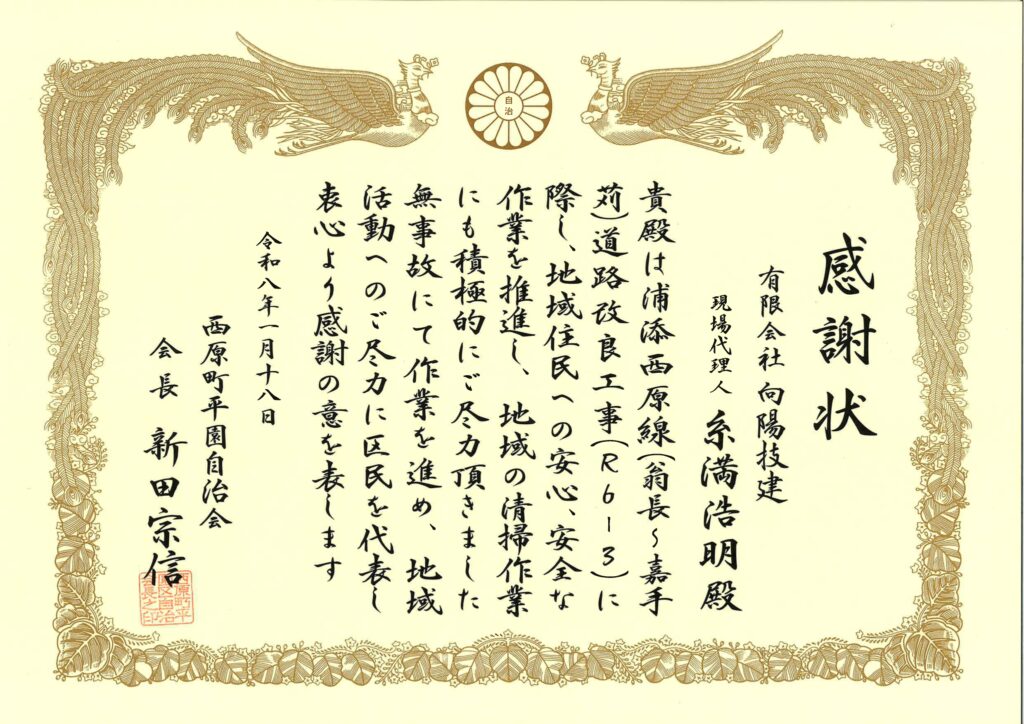 自治
感謝状
有限会社 向陽技建
現場代理人 糸満浩明殿
貴殿は浦添西原線(翁長～嘉手
苅)道路改良工事(R6-3)に
際し、地域住民への安心、安全な
作業を推進し、地域の清掃作業
にも積極的にご尽力頂きました
無事故にて作業を進め、地域
活動へのご尽力に区民を代表し
衷心より感謝の意を表します
令和八年一月十八日
西原町平園自治会
会長 新田宗信